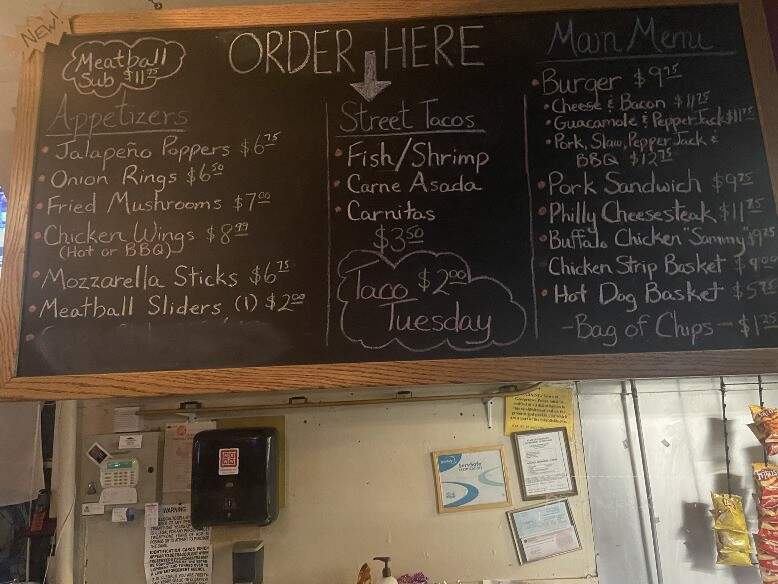 New!
Meatball
Sub $11 75
ORDER HERE
Appetizers
• Jalapeño Poppers $6 75
• Onion Rings $6 50
• Fried Mushrooms $7 00
• Chicken Wings $8 99
(Hot or BBQ)
• Mozzarella Sticks $6 75
• Meatball Sliders (1) $2 00
Street Tacos
• Fish/Shrimp
• Carne Asada
• Carnitas
$3 50
Taco $2 00
Tuesday
Main Menu
• Burger $9 75
• Cheese & Bacon $11 25
• Guacamole & Pepper Jack $11 75
• Pork, Slaw, Pepper Jack &
BBQ $12 75
• Pork Sandwich $9 75
• Philly Cheesesteak $11 75
• Buffalo Chicken "Sammy" $9 25
Chicken Strip Basket $9 00
• Hot Dog Basket $5 75
- Bag of Chips - $1 25
WARNING
IDENTIFICATION CARDS